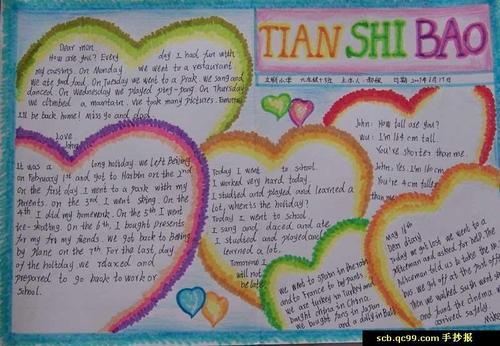 TIAN SHI BAO
Dear mom
How are you? Every day I had fun with
my cousins. On Monday we went to a restaurant.
We ate good food. On Tuesday we went to a Prak. We sang and
danced. On Wednesday we played ping-pong. On Thursday
we climbed a mantain. We took many pictures. Tomorrow
I'll be back home! miss go and dad
Love
John
It was a long holiday. We left Beijing
on February 1st and got to Harbin on the 2nd
on the first day I went to a park with my
parents. on the 3rd I went skiing. On the
4th I did my homework. On the 5th I went
ice-skating. On the 6th, I bought presents
for my friends. We got back to Beijing
by plane on the 7th. For the last day
of the holiday we relaxed and
prepared to go back to work or
school.
Today I went to school.
I worked very hard today.
I studied and played and learned a
lot, when is the holiday?
Today I went to school
I sang and daced and ate
I studied and played and
learned a
Tomorrow I will
not be
late
John: How tall are you?
Wu: I'm 164 cm tall.
You're shorter than me.
John: Yes. I'm 160 cm
You're 4 cm taller
than me.
We went to Spain
and to France to by pants
we ate turkey in Turkey and
bought china in China.
We bought fans in Japan
and a dolly in Bali
Dear diary
Today we got lost. We went to a
Policeman and asked for help. The
Policeman told us to take the
bus. We got off at the post office
Then we walked South
and found the cinema. We
arrived safely.
scb.qc99.com 手抄报